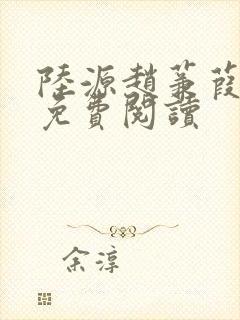 陸源趙蒹葭
免費閱讀
余淳